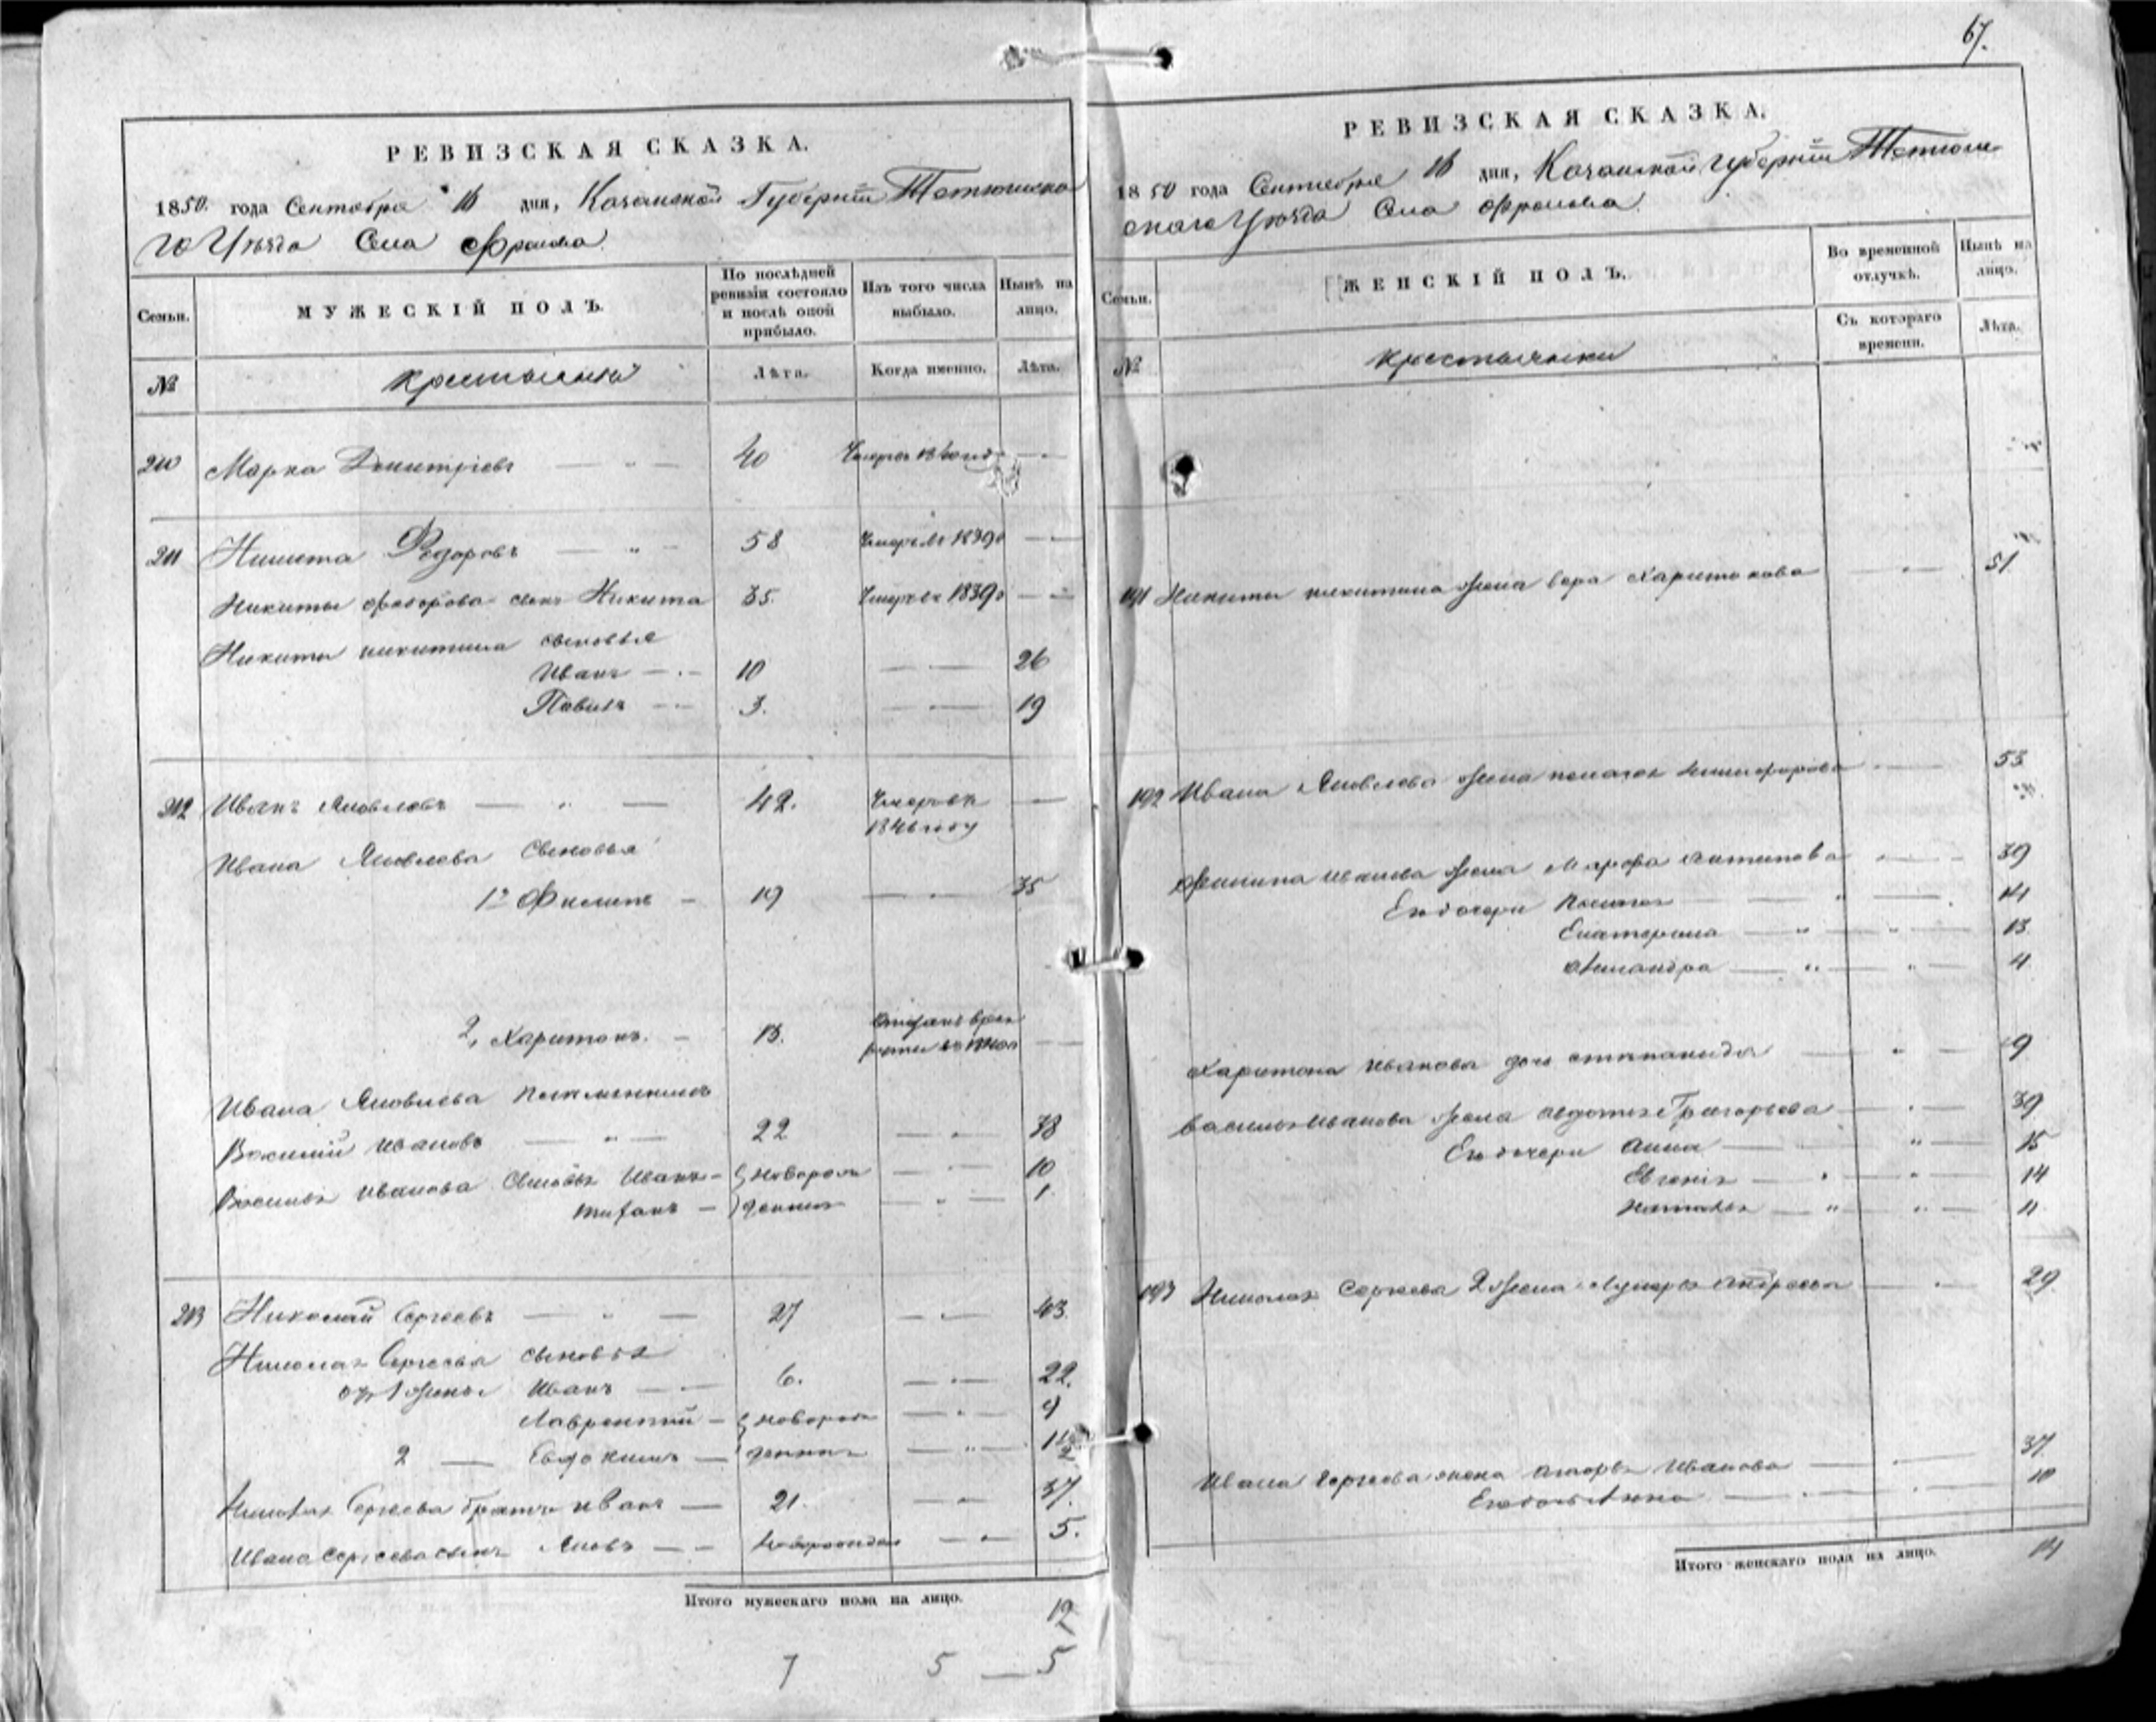 67.
РЕВИЗСКАЯ СКАЗКА.
1850. года Сентября 16 дня, Казанской Губернiи Тетюшска
го Уѣзда Села Фролова.
Семьи.
МУЖЕСКІЙ ПОЛЪ.
По послѣдней ревизіи состояло и послѣ оной прибыло.
Изъ того числа выбыло.
Нынѣ на лицо.
№
Крестьяне
Лѣта.
Когда именно.
Лѣта.
210 Марка Дмитріевъ 40
211 Никита Федоровъ 58 Умеръ въ 1839
Никиты Федорова сынъ Никита 35. Умеръ въ 1839
Никиты никитина сыновья
Иванъ 10 26
Павилъ 3. 19
212 Иванъ Яковлевъ 42. Умеръ въ
1846 году
Ивана Яковлева Сыновья
1й Филипъ 19 35
2, Харитонъ. 13.
Ивана Яковлева племянникъ
Василій Ивановъ 22 38
Василья Иванова Сыновья Иванъ новорож 10
денные 1.
213 Николай Сергеевъ 27 43.
Николая Сергеева сыновья
отъ 1 жены Иванъ 6. 22.
Лаврентій новорож 9
2 Евдокимъ денные 1 1/2
Николая Сергеева братъ Иванъ 21. 37.
Ивана Сергеева сынъ Яковъ новорожден 5.
Итого мужескаго пола на лицо.
12
7 5 5
РЕВИЗСКАЯ СКАЗКА.
1850 года Сентября 16 дня, Казанской Губерніи Тетюш
скаго Уѣзда Села Фролова.
Семьи.
ЖЕНСКІЙ ПОЛЪ.
Во временной отлучкѣ.
Нынѣ на лицо.
№
Крестьянки
Съ котораго времени.
Лѣта.
191 Никиты никитина жена вера Харитонова 51
192 Ивана Яковлева жена пелагея никифорова 53
Филипа иванова жена Марфа Антипова 39
Ея дочери 14
Екатерина 13.
4
Харитона Иванова дочь степанида 9
Василья Иванова жена авдотья Григорьева 39
Ея дочери Анна 15
Евгенія 14
Наталья 11
193 Николая Сергеева 2 жена Лукерья Андреева 29
Ивана Сергеева жена Иванова 37.
Ея дочь Анна 10
Итого женскаго пола на лицо. 14